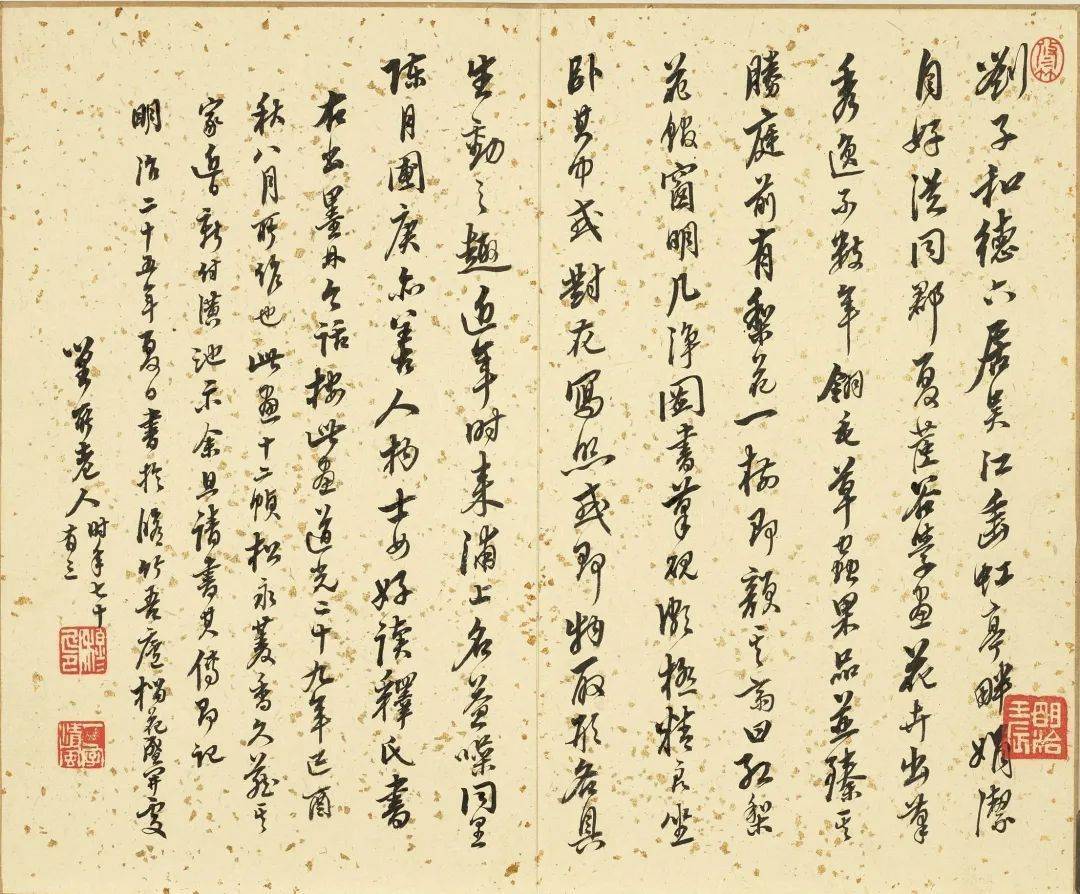 劉子和德六居吳江垂虹亭畔娟潔
自好從同郡夏茝谷學畫花卉出筆
秀逸不數年翎毛草蟲果品並臻其
勝庭前有梨花一樹即額其齋曰紅梨
花館窗明几淨圖書筆硯極精良坐
臥其中或對花寫照或即物取形各具
生動之趣近年時來浦上名益噪同里
陳月圃庚亦善人物士女好讀釋氏書
右出墨林今話按此畫道光二十九年己酉
秋八月所作也此畫十二幀松永菱香久藏其
家近日新付潢池示余且請書其傳即記
明治二十五年夏日書於脩竹吾廬榴花盛開處
所老人時年七十有三
明治壬辰